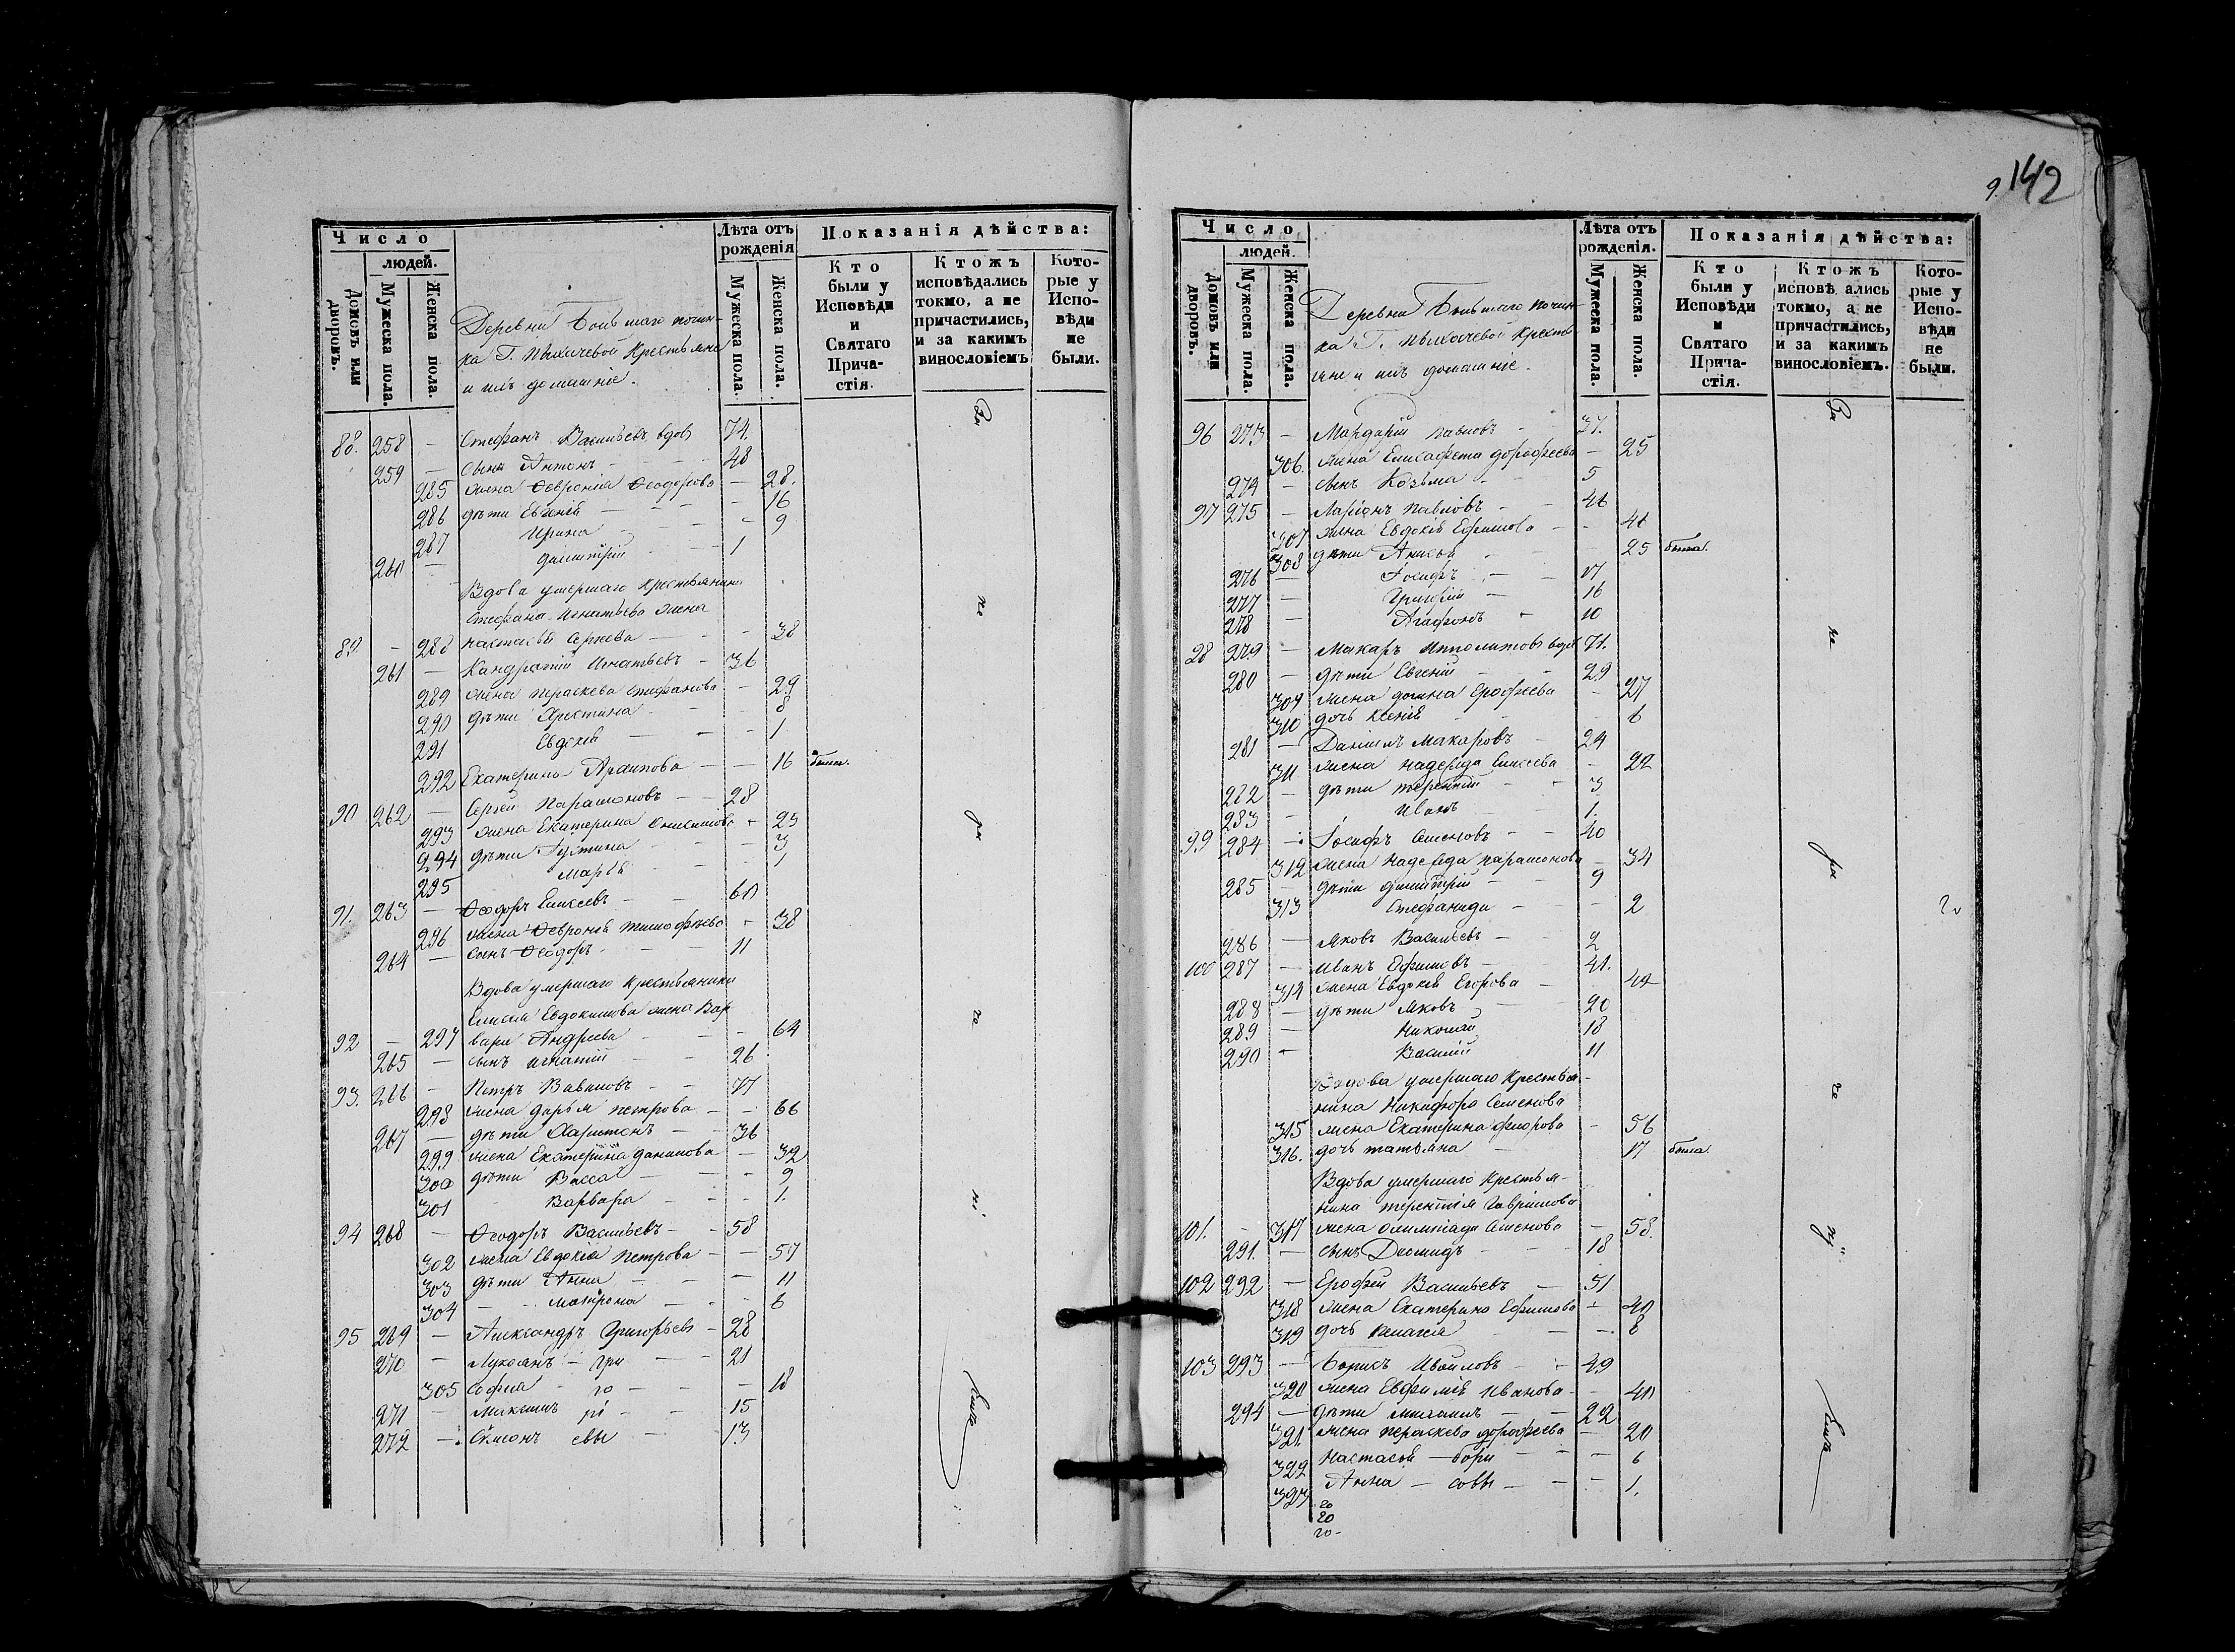 Число
людей.
Домовъ или дворовъ.
Мужеска пола.
Женска пола.
Деревни Большаго почин-
ка Г. Пыхачевой Крестьяна
и ихъ домашніе.
Лѣта отъ рожденія
Мужеска пола.
Женска пола.
Показанія дѣйства:
Кто были у Исповѣди и Святаго Прича-стія.
Ктожъ исповѣдались токмо, а не причастились, и за какимъ винословіемъ
Кото-рые у Испо-вѣди не были.
88. 258 — Стефанъ Васильевъ вдов 74.
259 — сынъ Антонъ 48
285 жена Февронія Феодорова — 28.
286 дѣти Евгеній — 16
287 Ирина — 9
260 — Димитрій 1
Вдова умершаго Крестьянина
Стефана Игнатьева жена
89. — 288 Настасья Сергѣева — 38
261 — Кандратій Игнатьевъ — 36
289 жена Параскева Стефанова — 29
290 дѣти Христина — 8
291 Евдокія — 1
292 Екатерина Архипова — 16 была.
90 262 — Сергѣй Парамоновъ — 28
293 жена Екатерина Онисимова — 25
294 дѣти Іустина — 3
295 Марья — 1
91. 263 — Феодоръ Елисеевъ — 60
296 жена Февронія Тимофѣева — 38
264 — сынъ Феодоръ 11
Вдова умершаго Крестьянина
Елисея Евдокимова жена Вар
92 — 297 вара Андреева — 64
265 — сынъ Игнатій — 26
93. 266 — Петръ Вавиловъ — 77
298 жена Дарья Петрова — 66
267 — дѣти Харитонъ — 36
299 жена Екатерина Данилова — 32
300 дѣти Васса — 9
301 Варвара — 1.
94 268 — Феодоръ Васильевъ — 58
302 жена Евдокія Петрова — 57
303 дѣти Анна — 11
304 Матрона — 6
95 269 — Александръ Григорьевъ — 28
270 — Лукіянъ — гри — 21
305 Софія — го — 18
271 — Максимъ рі — 15
272 — Симонъ евы — 13
9. 142
Число
людей.
Домовъ или дворовъ.
Мужеска пола.
Женска пола.
Деревни Большаго почин-
ка Г. Пыхачевой Кресть
яне и ихъ домашніе.
Лѣта отъ рожденія.
Мужеска пола.
Женска пола.
Показанія дѣйства:
Кто были у Исповѣди и Святаго Прича-стія.
Ктожъ исповѣ ались токмо, а не причастились, и за какимъ винословіемъ.
Кото-рые у Испо-вѣди не были.
96 273 — Мардарій Павловъ — 37.
306. жена Елисафета Дорофеева — 25
274 — сынъ Козьма — 5
97 275 — Ларіонъ Павловъ — 46
307 жена Евдокія Ефимова — 46
308 дѣти Анисья — 25 была.
276 — Іосифъ — 17
277 — Григорій — 16
278 — Агафонъ — 10
98 279 — Макаръ Ипполитовъ вдов 71.
280 — дѣти Евгеній — 29
309 жена Домна Ерофеева — 27
310 дочь Ксенія — 6
281 — Даніилъ Макаровъ — 24
311 жена Надежда Елисеева — 22
282 — дѣти Терентій — 3
283 — Иванъ — 1.
99 284 — Іосифъ Семеновъ — 40
312 жена Надежда Парамонова — 34
285 — дѣти Димитрій — 9
313 Стефанида — 2
286 — Яковъ Васильевъ — 2
100 287 — Иванъ Ефимовъ — 41.
314 жена Евдокія Егорова — 42
288 — дѣти Яковъ 20
289 — Николай 18
290 — Василій 11
Вдова умершаго Крестья-
нина Никифора Семенова
315 жена Екатерина Флорова — 56
316. дочь Татьяна — 17 была.
Вдова умершаго Крестья-
нина Терентія Гавріилова
101. — 317 жена Олимпіада Семенова — 58.
291. — сынъ Диомидъ — 18
102 292 — Ерофей Васильевъ — 51
318 жена Екатерина Ефимова — 40
319 дочь Пелагея — 8
103 293 — Борисъ Ивойловъ — 49
320 жена Евфимія Иванова — 40
294 — дѣти Михаилъ — 22
321. жена Параскева Дорофеева — 20
322 Настасья — бори — 6
323 Анна — совы — 1.